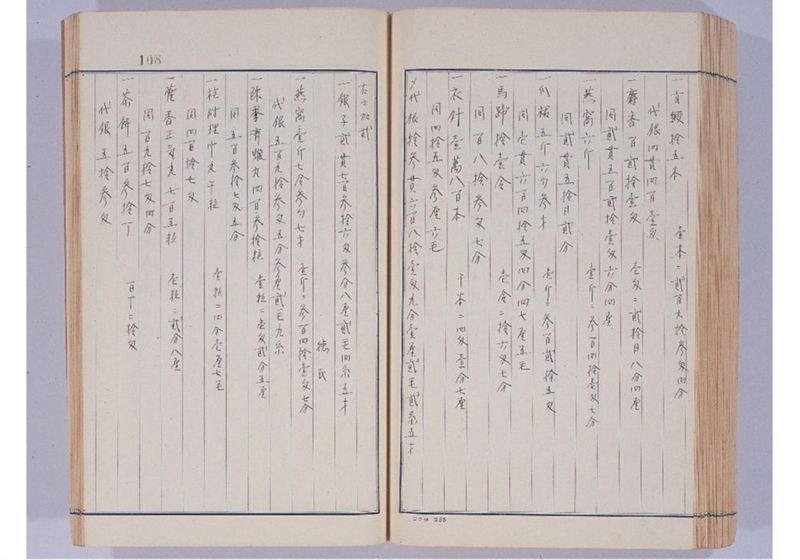 一貢緞拾五本 壹本ニ貳百九拾参匁四分
代銀四貫四百壹匁
一麝香百貳拾壹匁 壹匁ニ貳拾目八分四厘
同貳貫五百貳拾壹匁六分四厘
一燕窩六斤 壹斤ニ参百四拾壹匁七分
同貳貫五拾目貳分
一爪楼五斤六勺参才 壹斤ニ参百貳拾五匁
同壹貫六百四拾五匁四分七厘五毛
一馬蹄拾壹合 壹合ニ拾六匁七分
同百八拾参匁七分
一衣針壹萬八百本 千本ニ四匁壹分七厘
同四拾五匁参厘六毛
〆代銀拾参貫六百八拾壹匁九分壹厘貳毛貳糸五才
108
一銀子貳貫七百参拾六匁参分八厘貳毛四糸五才
徳氏
一燕窩壹斤七合参勺七才 壹斤ニ参百四拾壹匁七分
代銀五百九拾参匁五分参厘貳毛九糸
一陳李済蠟丸四百参拾粒 壹粒ニ壹匁貳分五厘
同五百参拾七匁五分
一桂附理中丸千粒 壹粒ニ四分壹厘七毛
同四百拾七匁
一藿香正気丸七百五粒 壹粒ニ貳分八厘
同百九拾七匁四分
一茶餅五百参拾丁 百丁ニ拾匁
代銀五拾参匁